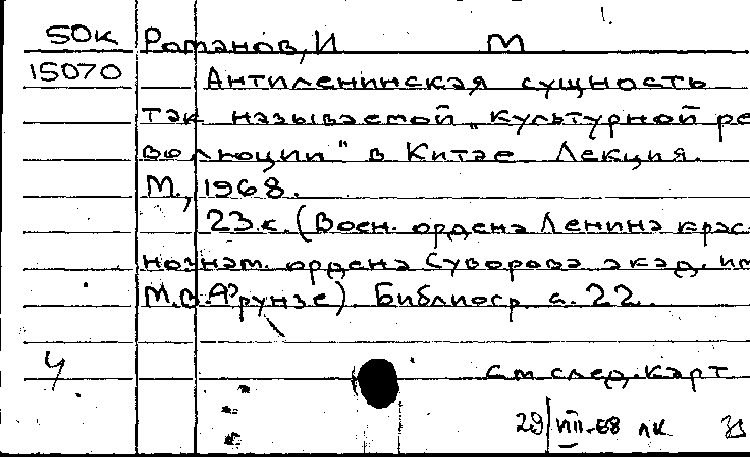 50к Романов, И М
15070 Антиленинская сущность
так называемой „культурной ре
волюции" в Китае. Лекция.
М., 1968.
23 с. (Воен. ордена Ленина крас
нознам. ордена Суворова акад. им
М.В. Фрунзе). Библиогр. с. 22.
4 См след. карт
29/VIII-68 лк